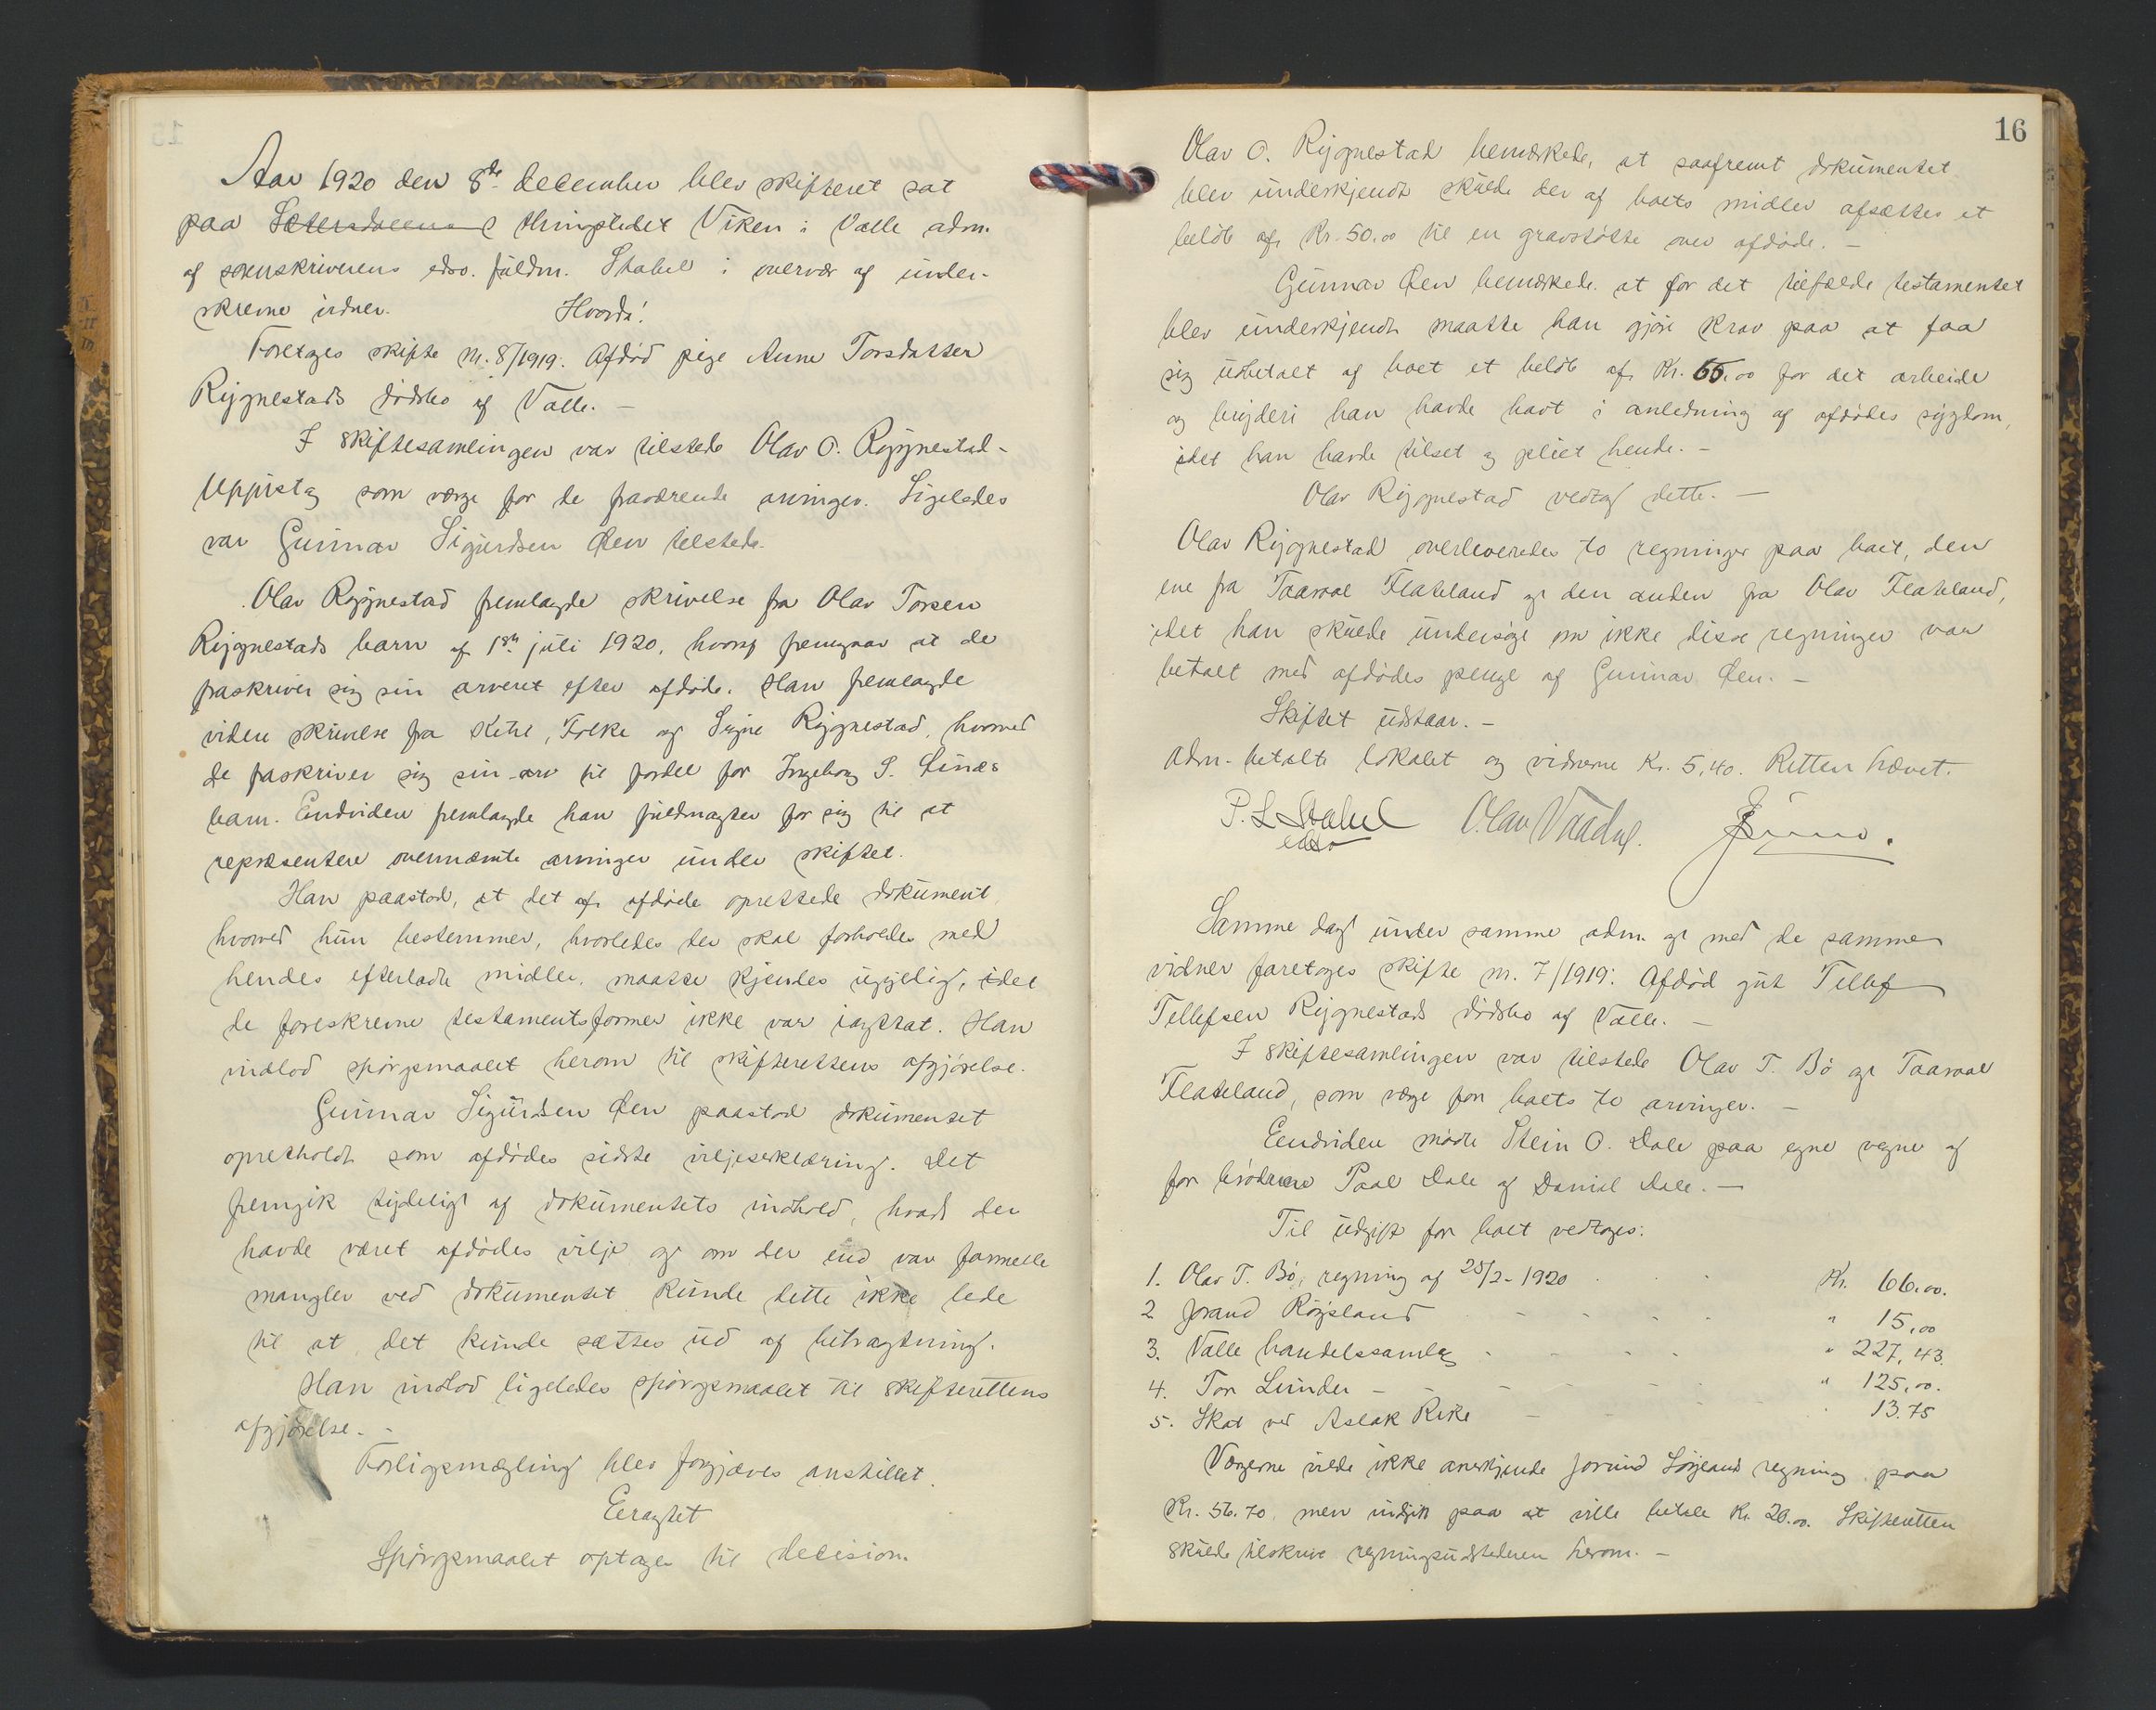 Aar 1920 den 8de december blev skifteret sat
paa Sætersdalens thingstedet Viken i Valle adm.
af sorenskriverens edsv. fuldm. Stabel i overvær af under-
skrevne vidner. Hvorda!
Foretages skifte nr. 8/1919. Afdød pige Anne Torsdatter
Rygnestads dødsbo af Valle. –
I skiftesamlingen var tilstede Olav O. Rygnestad-
Uppistog som værge for de fraværende arvinger. Ligeledes
var Gunnar Sigurdsen Øen tilstede.
Olav Rygnestad fremlagde skrivelse fra Olav Torsen
Rygnestads barn af 1ste juli 1920, hvoraf fremgaar at de
fraskriver sig sin arveret efter afdøde. Han fremlagde
videre skrivelse fra Ketil, Folke og Signe Rygnestad, hvorved
de fraskriver sig sin arv til fordel for Ingeborg S. Øinæs
barn. Endvidere fremlagde han fuldmagter for sig til at
repræsentere overnævnte arvinger under skiftet.
Han paastod, at det af afdøde oprettede dokument,
hvorved hun bestemmer, hvorledes der skal forholdes med
hendes efterladte midler, maatte kjendes ugyldig, idet
de foreskrevne testamentsformer ikke var iagttat. Han
indlod spørgsmaalet herom til skifterettens afgjørelse.
Gunnar Sigurdsen Øen paastod dokumentet
opretholdt som afdødes sidste viljeserklæring. Det
fremgik tydeligt af dokumentets indhold, hvad der
havde været afdødes vilje og om der end var formelle
mangler ved dokumentet kunde dette ikke lede
til at det kunde sættes ud af betragtning.
Han indlod ligeledes spørgsmaalet til skifterettens
afgjørelse. –
Forligsmægling blev forgjæves anstillet.
Eragtet
Spørgsmaalet optages til decision.
16
Olav O. Rygnestad bemærkede, at saafremt dokumentet
blev underkjendt skulde der af boets midler afsættes et
beløb af Kr. 50.00 til en gravstøtte over afdøde. –
Gunnar Øen bemærkede at for det tilfælde testamentet
blev underkjendt maatte han gjøre krav paa at faa
sig udbetalt af boet et beløb af Kr. 65.00 for det arbeide
og bryderi han havde havt i anledning af afdødes sygdom,
idet han havde tilset og pleiet hende. –
Olav Rygnestad vedtog dette. –
Olav Rygnestad overleveredes to regninger paa boet, den
ene fra Taaraal Flateland og den anden fra Olav Flateland,
idet han skulde undersøge om ikke disse regninger var
betalt med afdødes penge af Gunnar Øen. –
Skiftet udstaar. –
Adm. betalte lokalet og vidnerne Kr. 5,40. Retten hævet.
P. L. Stabel Olav Vaadne.
edsv
Samme dag under samme adm. og med de samme
vidner foretages skifte nr. 7/1919: Afdød gut Tellef
Tellefsen Rygnestads dødsbo af Valle. –
I skiftesamlingen var tilstede Olav T. Bø og Taaraal
Flateland, som værge for boets to arvinger. –
Endvidere mødte Stein O. Dale paa egne vegne og
for brødrene Paal Dale og Daniel Dale. –
Til udgift for boet vedtages:
1. Olav T. Bø, regning af 25/2-1920 Kr. 66.00.
2 Jorand Røysland " 15,00
3. Valle handelssamlag " 227,43.
4. Tor Lunden " 125,00.
5. Skat ved Aslak Rike " 13.75
Værgerne vilde ikke anerkjende Jorund regning paa
Kr. 56.70, men indgik paa at ville betale Kr. 20.00. Skifteretten
skulde tilskrive regningsudstederen herom. –